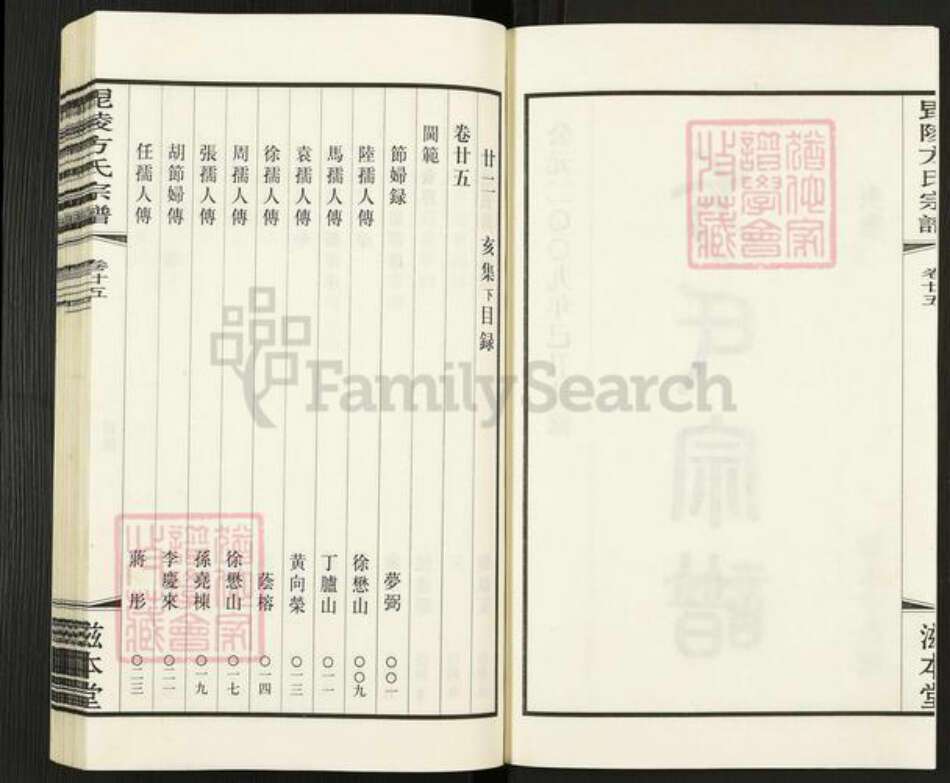 毘陵方氏宗譜
卷廿五
滋本堂
廿二 亥集下目録
卷廿五
閫範
節婦録 夢弼 〇〇一
陸孺人傳 徐懋山 〇〇九
馬孺人傳 丁臚山 〇一一
袁孺人傳 黃向榮 〇一三
徐孺人傳 蔭榕 〇一四
周孺人傳 徐懋山 〇一七
張孺人傳 孫堯棟 〇一九
胡節婦傳 李慶來 〇二一
任孺人傳 蔣彤 〇二三
毘陵方氏宗譜
卷廿五
滋本堂
FamilySearch